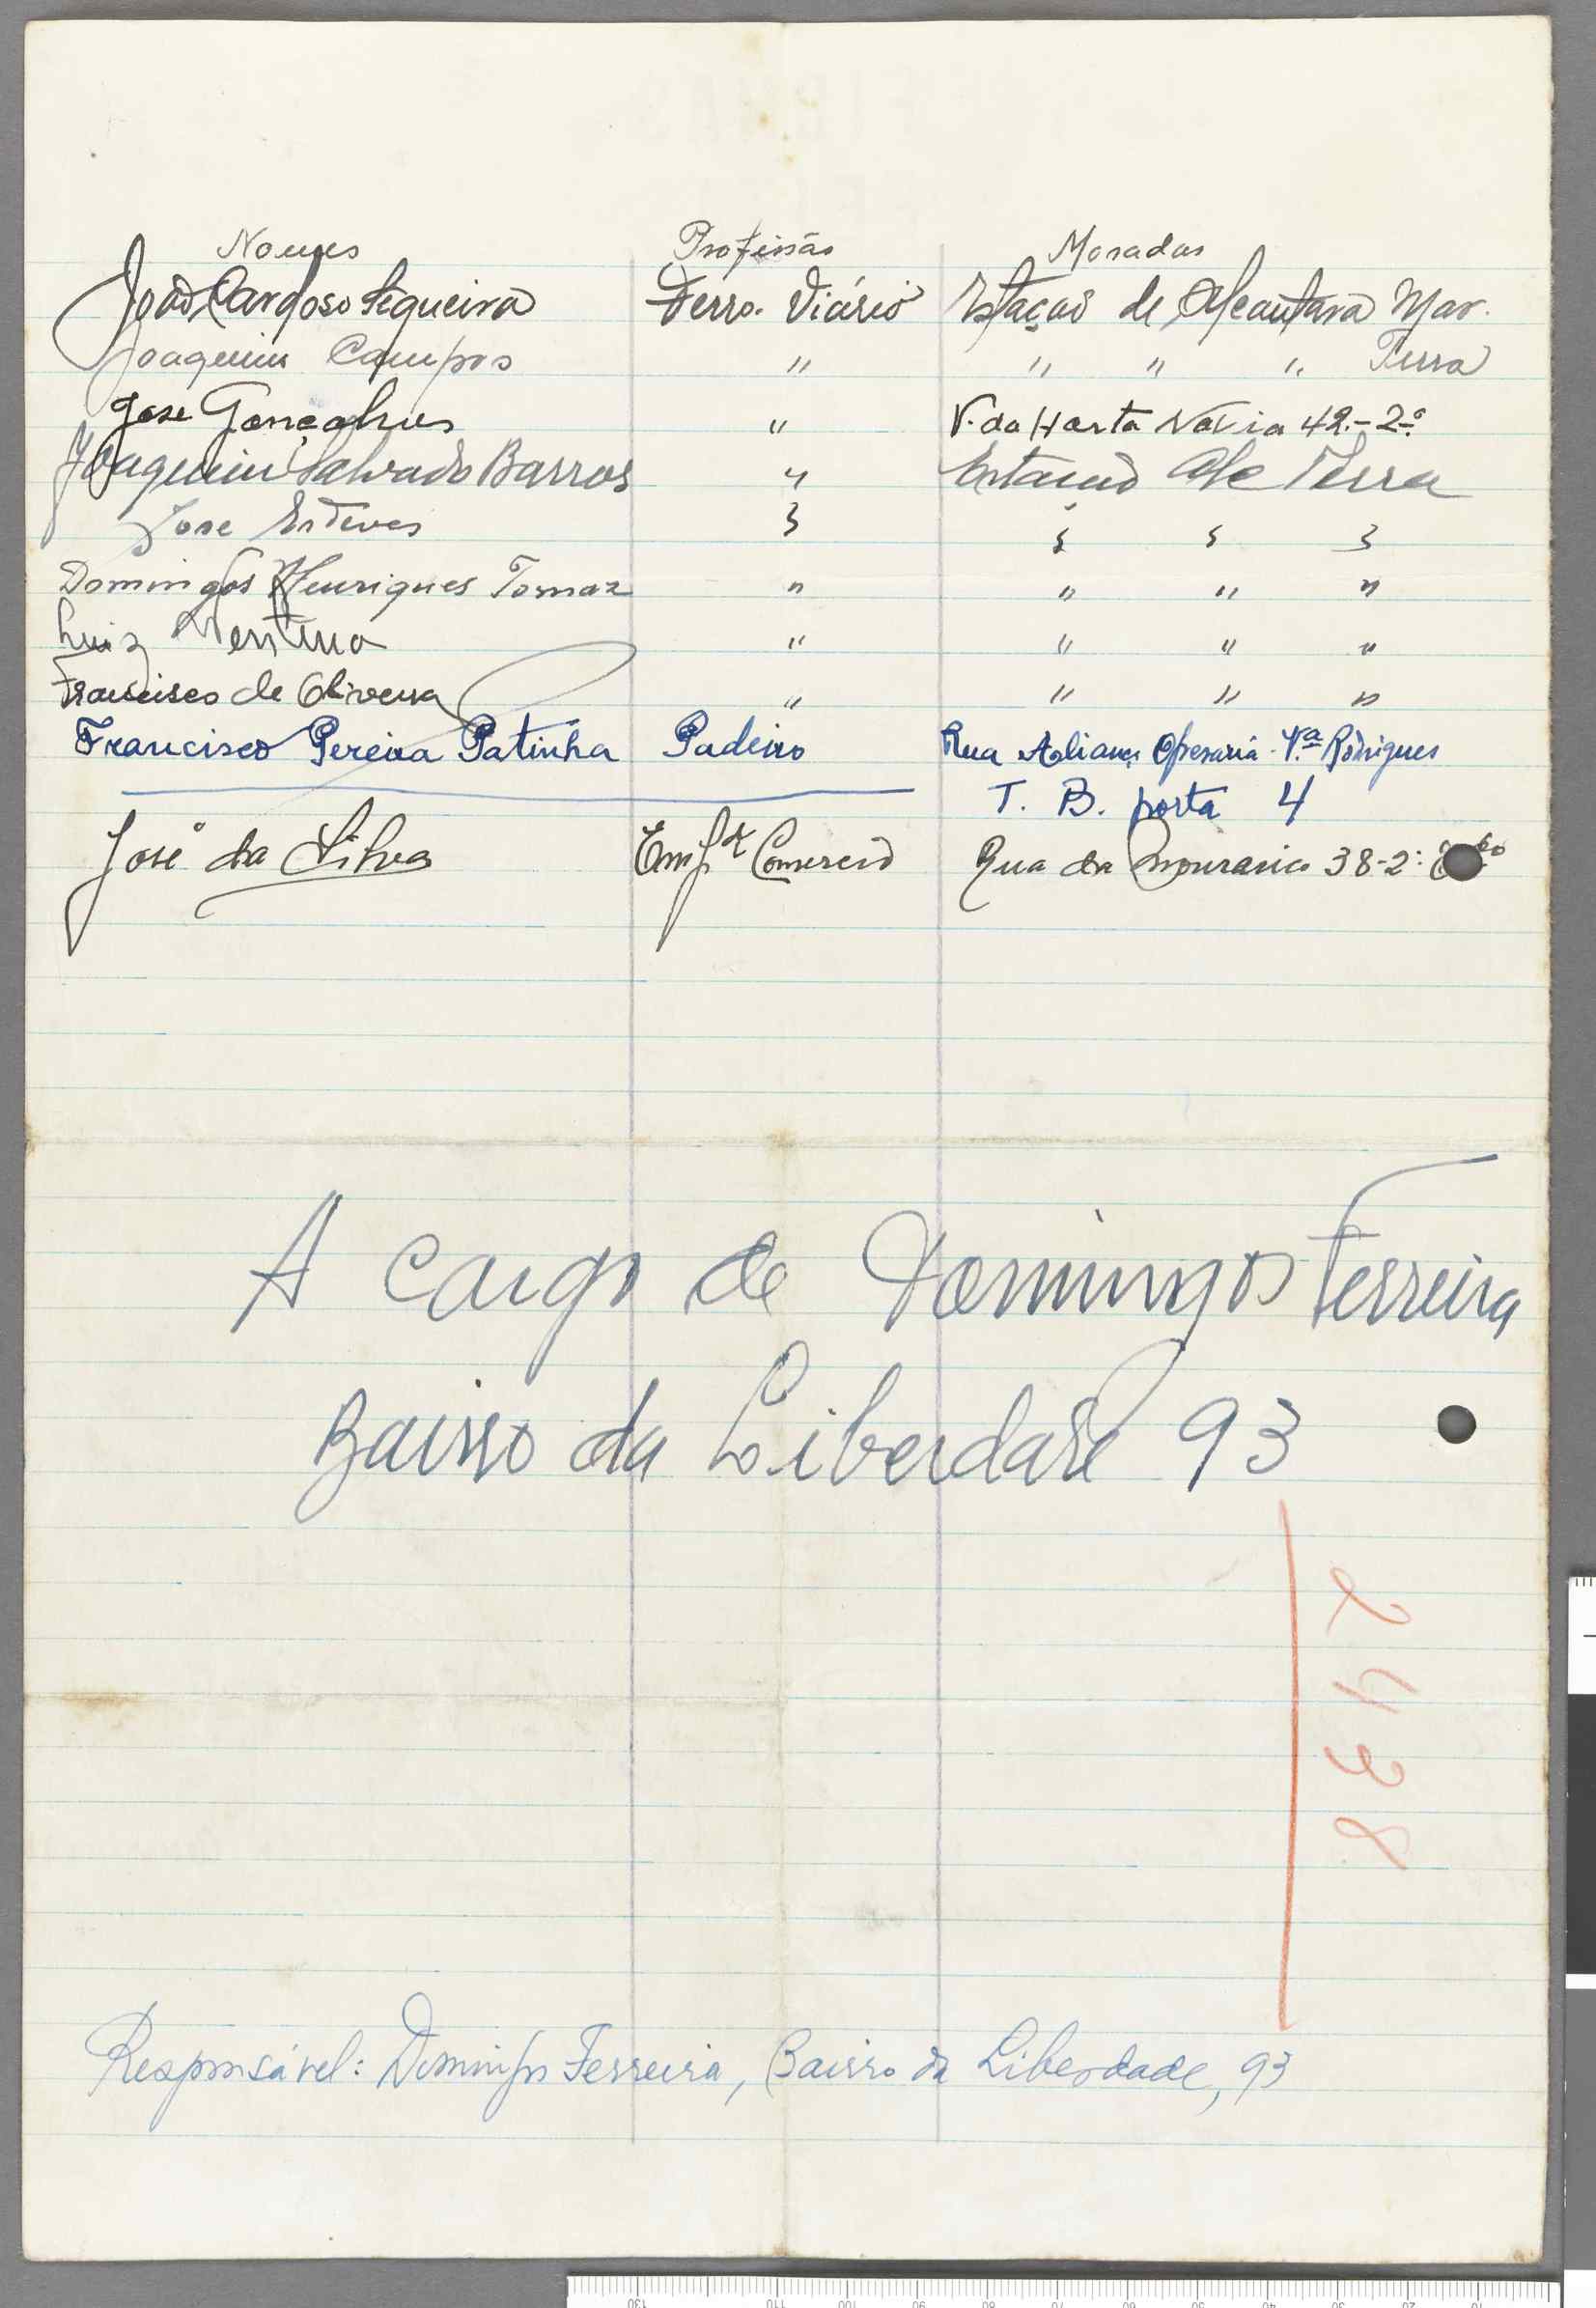 Nomes Profissão Moradas
João Cardoso Sequeira Ferro-Viário Estação de Alcantara Mar.
Joaquim Campos " " " " Terra
Jose Gonçalves " 42.-2º
Joaquim Salvado Barros " Estação Alc Terra
Jose Esteves " " " "
Domingos Henriques Tomaz " " " "
Luiz " " " "
Francisco de Oliveira " " " "
Francisco Pereira Patinha Padeiro Rua Aliança Operaria Vª Rodrigues
T. B. porta 4
José da Silva Empº Comercio Rua da Mouraria 38-2º
A cargo de Domingos Ferreira
Bairro da Liberdade 93
2438
Responsável: Domingos Ferreira, Bairro da Liberdade, 93